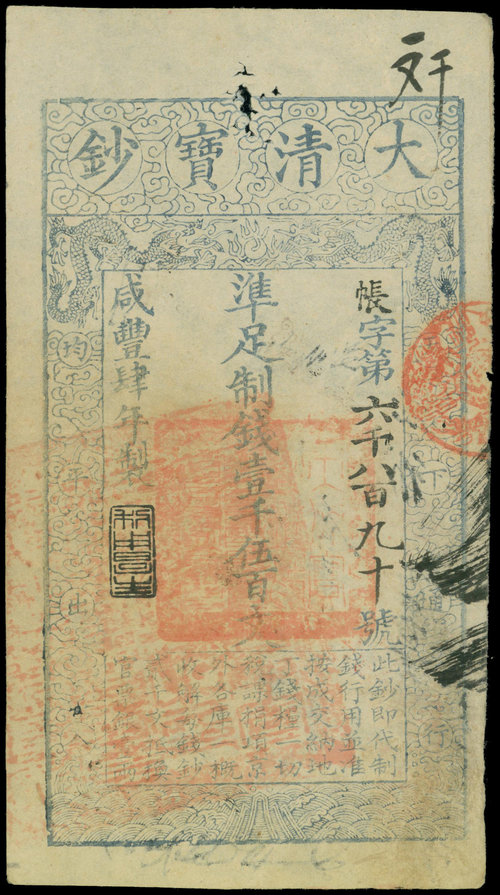 大清寶鈔
帳字第六千八百九十號
準足制錢壹千伍百文
咸豐肆年製
下通行
均平出入
此鈔即代制
錢行用並准
按成交納地
丁錢糧一切
稅課捐項京
外各庫一概
收解每錢鈔
貳千文抵換
官票銀壹兩